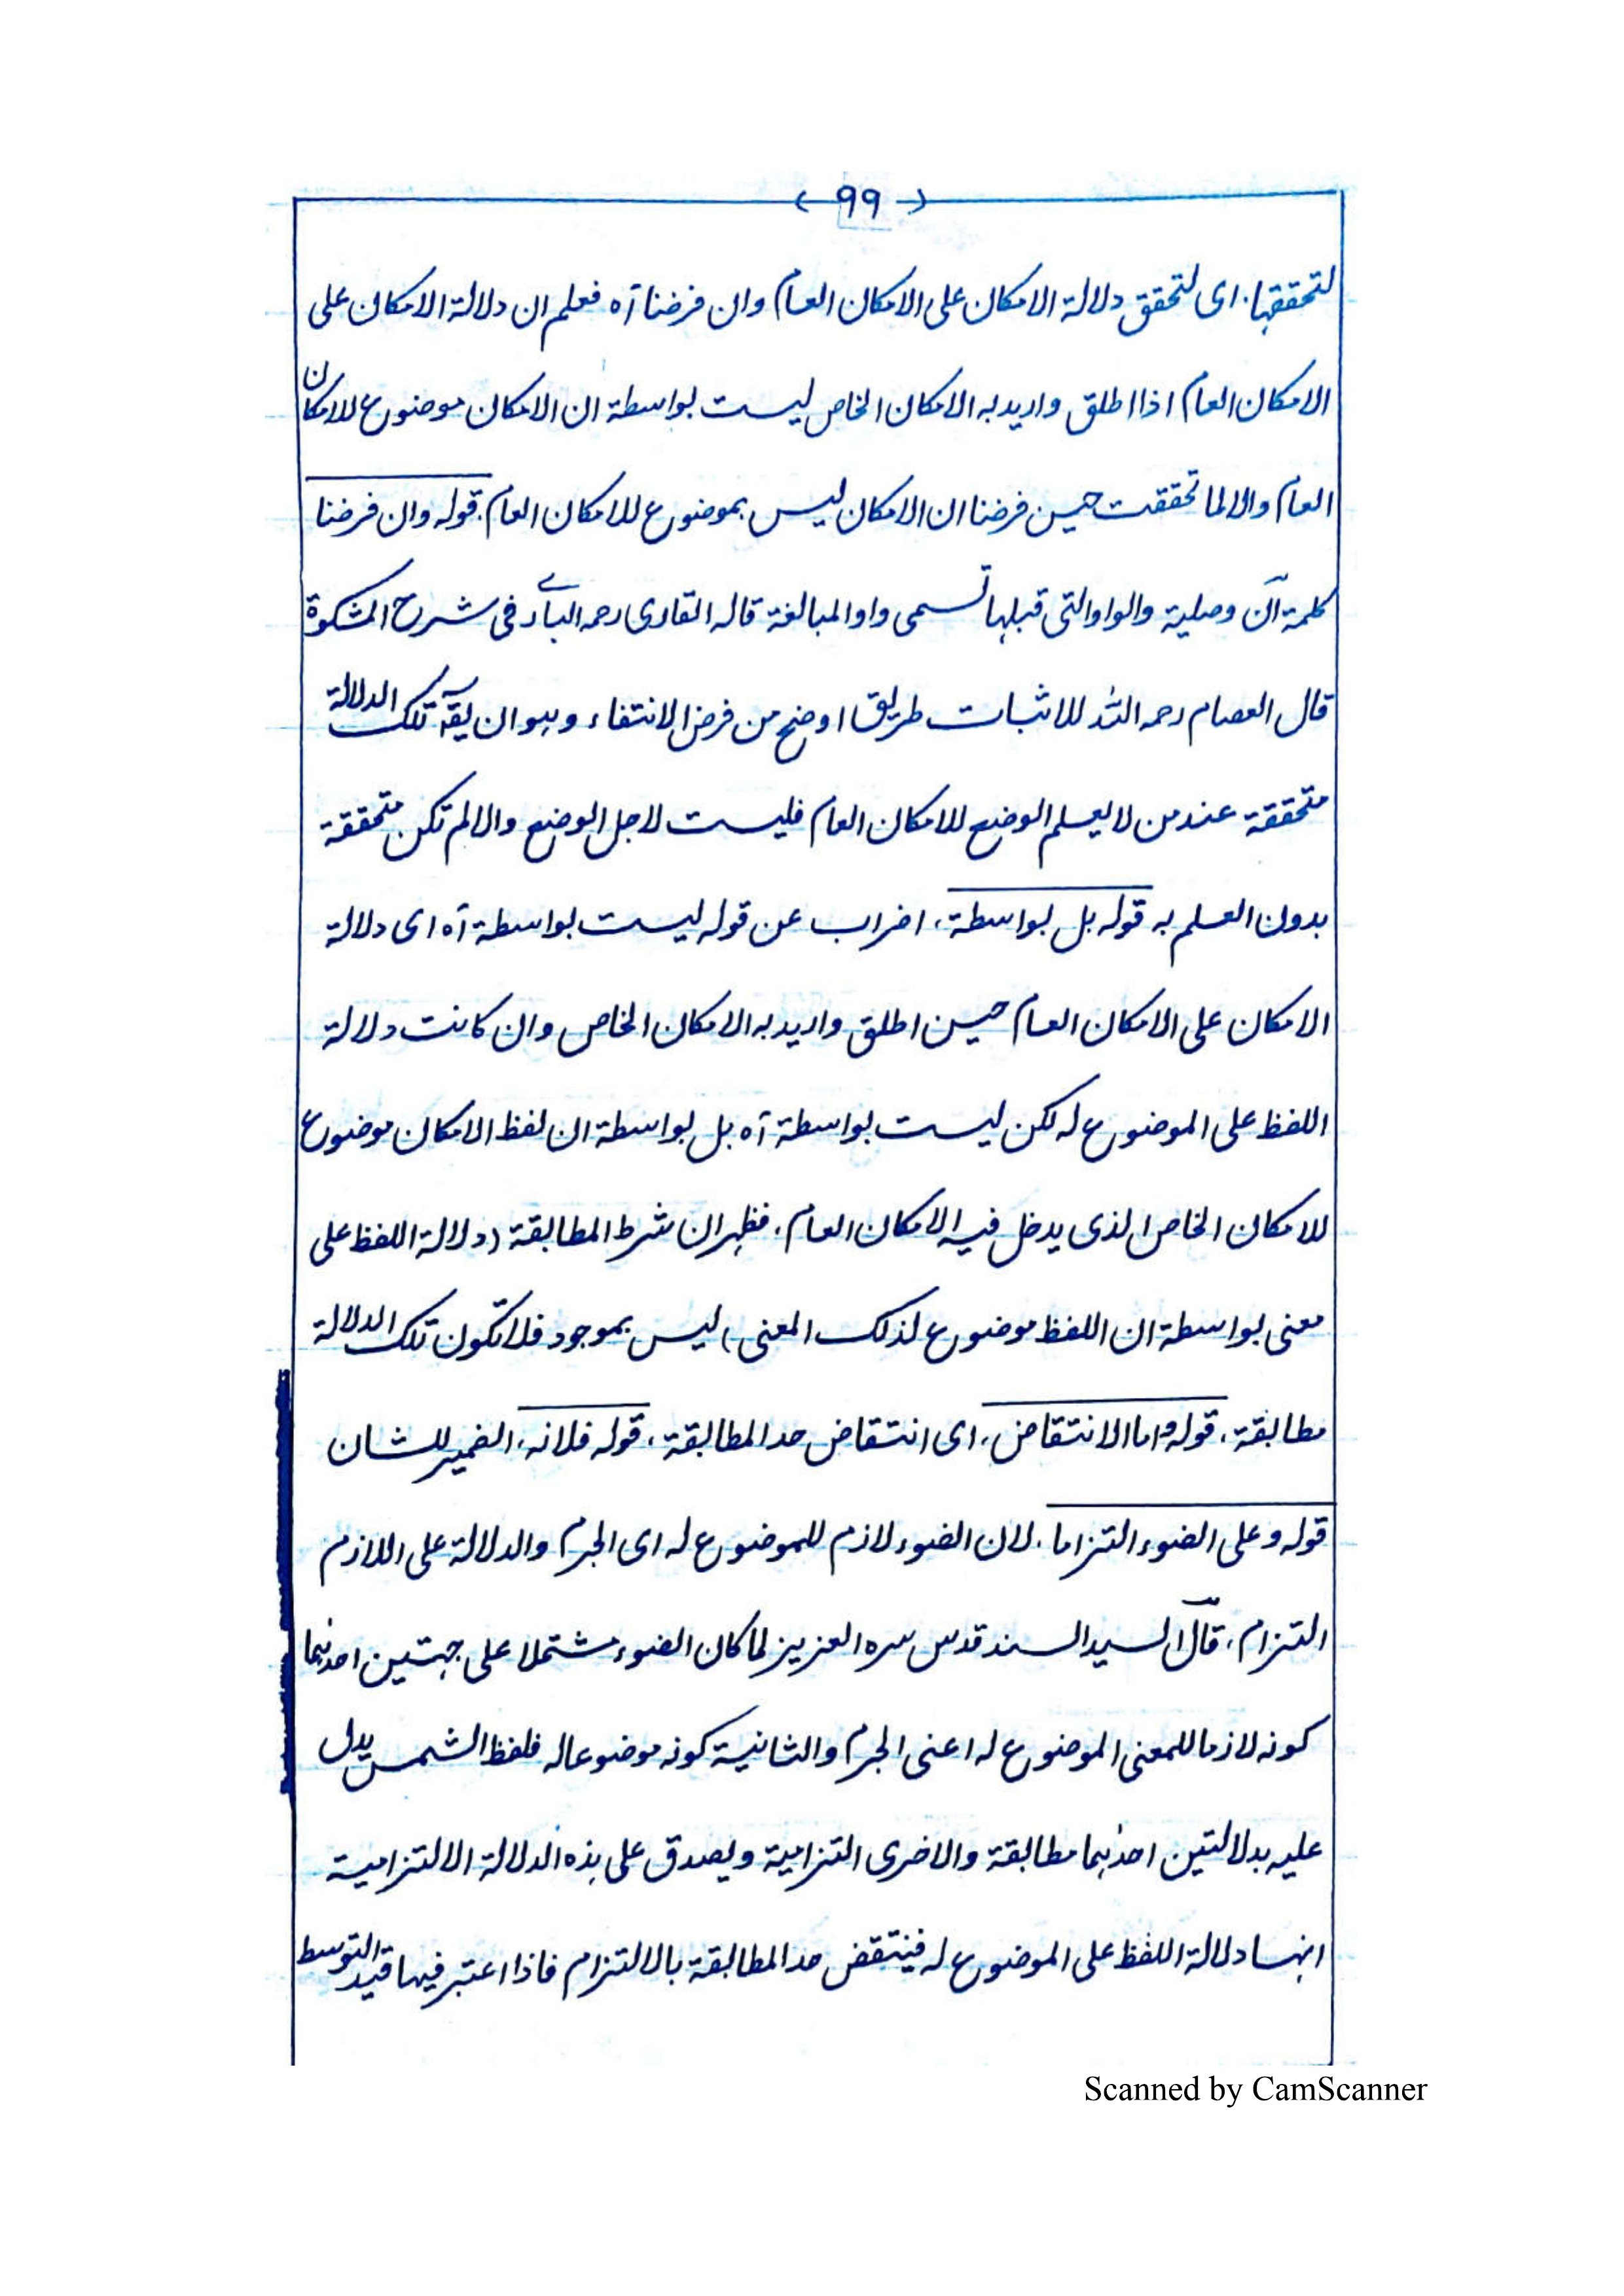 ﴿۹۹﴾
لتحققها. ای لتحقق دلالة الامکان علی الامکان العام) وان فرضنا آه فعلم ان دلالة الامکان علی
الامکان العام اذا اطلق وارید به الامکان الخاص لیست بواسطة ان الامکان موضوع للامکان
العام والا لما تحققت حین فرضنا ان الامکان لیس بموضوع للامکان العام. قوله وان فرضنا
کلمة ان وصلیة والواو التی قبلها تسمی واو المبالغة قاله القاری رحمه الباری فی شرح المشکوة
قال العصام رحمه الله للاثبات طریق اوضح من فرض الانتفاء وهو ان یقة تلک الدلالة
متحققة عند من لا یعلم الوضع للامکان العام فلیست لاجل الوضع والا لم تکن متحققة
بدون العلم به قوله بل بواسطة، اضراب عن قوله لیست بواسطة آه ای دلالة
الامکان علی الامکان العام حین اطلق وارید به الامکان الخاص وان کانت دلالة
اللفظ علی الموضوع له لکن لیست بواسطة آه بل بواسطة ان لفظ الامکان موضوع
للامکان الخاص الذی یدخل فیه الامکان العام، فظهر ان شرط المطابقة (دلالة اللفظ علی
معنی بواسطة ان اللفظ موضوع لذلک المعنی) لیس بموجود فلا تکون تلک الدلالة
مطابقة، قوله واما الانتقاض، ای انتقاض حد المطابقة، قوله فلانه، الضمیر للشان
قوله وعلی الضوء التزاما. لان الضوء لازم للموضوع له ای الجرم والدلالة علی اللازم
التزام، قال السید السند قدس سره العزیز لما کان الضوء مشتملا علی جهتین احدٰهما
کونه لازما للمعنی الموضوع له اعنی الجرم والثانیة کونه موضوعا له فلفظ الشمس یدل
علیه بدلالتین احدٰهما مطابقة والاخری التزامیة ویصدق علی هذه الدلالة الالتزامیة
انها دلالة اللفظ علی الموضوع له فینتقض حد المطابقة بالالتزام فاذا اعتبر فیها قید التوسط
Scanned by CamScanner